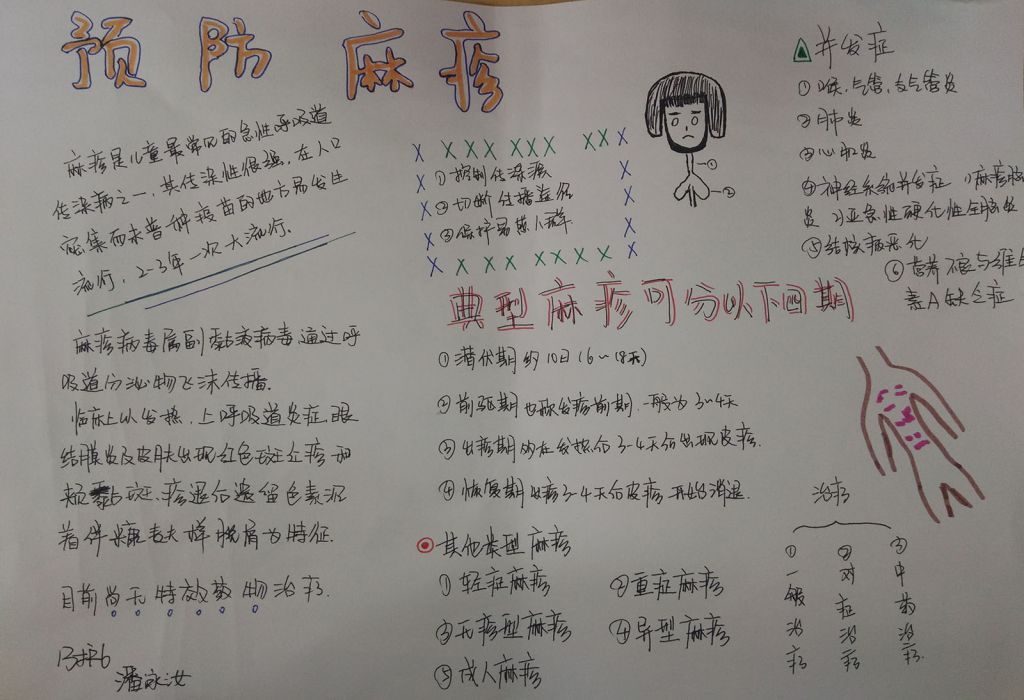 预防麻疹
麻疹是儿童最常见的急性呼吸道
传染病之一，其传染性很强，在人口
密集而未普种疫苗的地方易发生
流行，2-3年一次大流行。
麻疹病毒属副黏液病毒，通过呼
吸道分泌物飞沫传播。
临床上以发热，上呼吸道炎症，眼
结膜炎及皮肤出现红色斑丘疹和
颊黏斑，疹退后遗留色素沉
着伴糠麸样脱屑为特征。
目前尚无特效药物治疗。
潘咏汝
X X X X X X X X X X
① 控制传染源
② 切断传播途径
③ 保护易感人群
X X X X X X X X X
①
②
典型麻疹可分以下四期
① 潜伏期 约10日（6~18天）
② 前驱期 也称发疹前期，一般为3~4天
③ 出疹期 约在发热后3-4天后出现皮疹.
④ 恢复期 出疹3-4天后皮疹开始消退.
其他类型麻疹
① 轻症麻疹 ② 重症麻疹
③ 无疹型麻疹 ④ 异型麻疹
⑤ 成人麻疹
并发症
① 喉、气管、支气管炎
② 肺炎
③ 心肌炎
④ 神经系统并发症 1)麻疹脑
炎 2)亚急性硬化性全脑炎
⑤ 结核病恶化
⑥ 营养不良与维生
素A缺乏症
治疗
① 一般治疗
② 对症治疗
③ 中药治疗